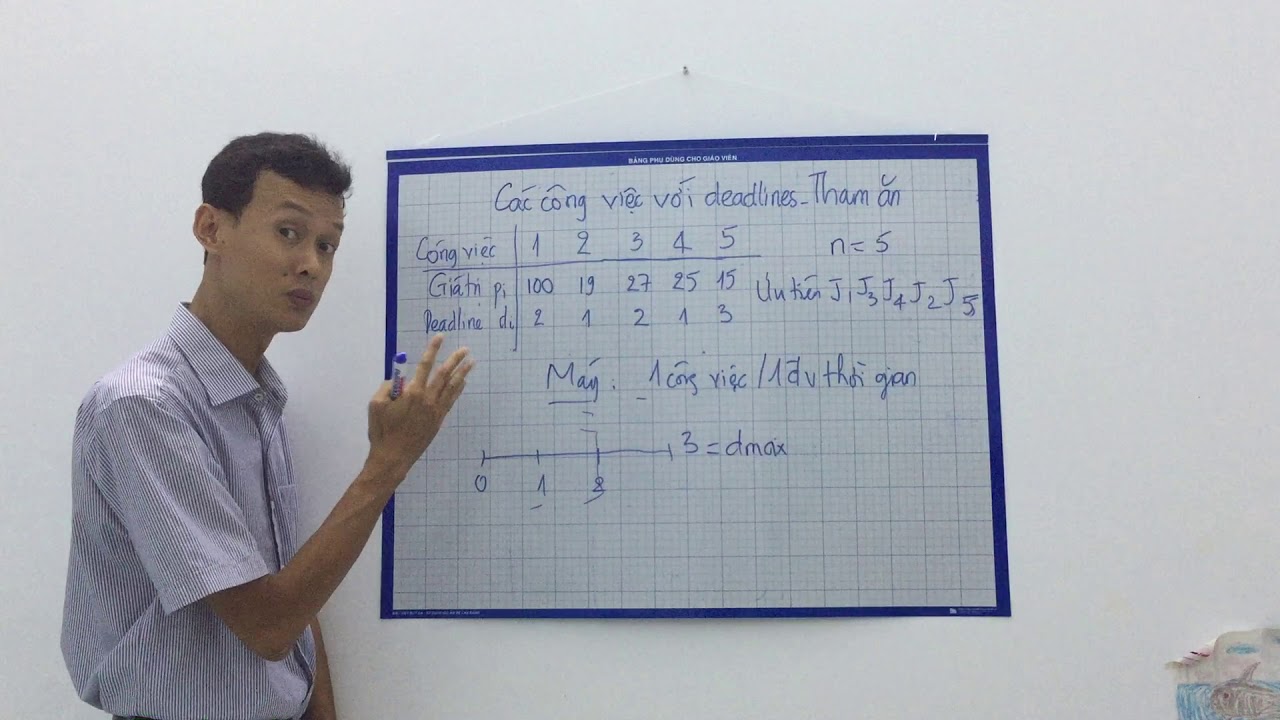 BẢNG PHỤ DÙNG CHO GIÁO VIÊN
Các công việc với deadlines_Tham ăn
Công việc 1 2 3 4 5 n = 5
Giá trị pi 100 19 27 25 15 Ưu tiên J1 J3 J4 J2 J5
Deadline di 2 1 2 1 3
Máy: 1 công việc / 1 đv thời gian
3 = dmax
0 1 2